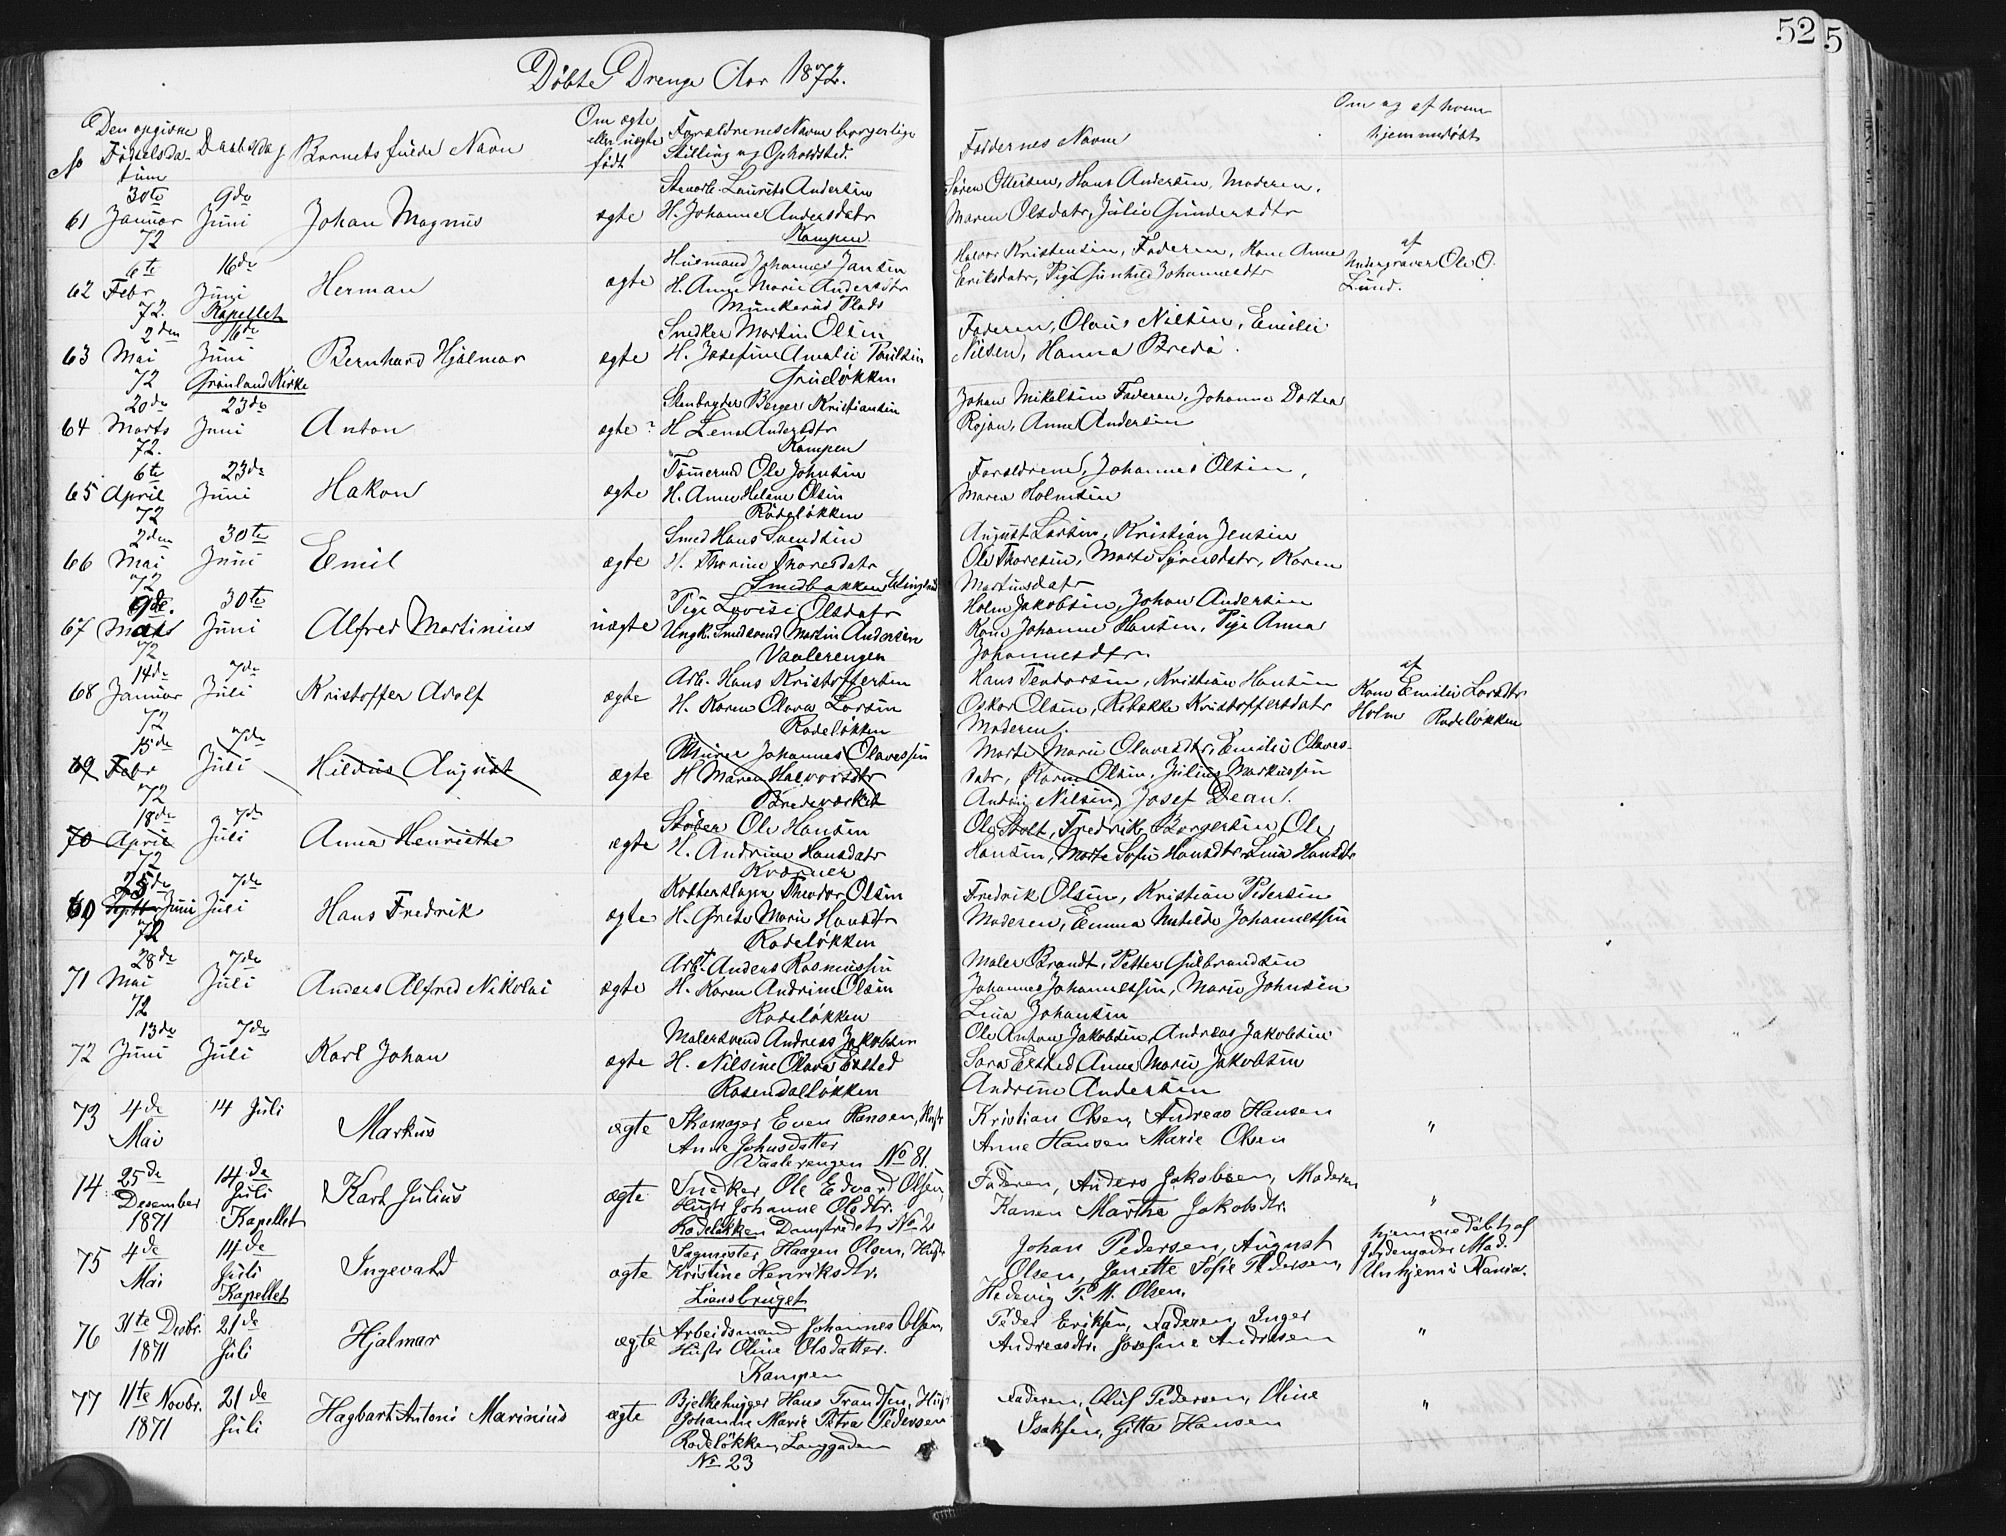 52 5
Döbte Drenge Aar 1872.
No Den opgivne Födselsdatum Daabsdag Barnets fulde Navn Om ægte eller uægte födt Forældrenes Navne borgerlige Stilling og Opholdsted. Faddernes Navne Om og af hvem hjemmedöbt
30te 9de Stenarb. Laurits Andersen Sören Ottersen, Hans Andersen, Moderen,
61 Januar Juni Johan Magnus ægte H. Johanne Andersdatr Maren Olsdatr, Julie Gundersdtr
72 Kampen
6te 16de Husmand Johannes Jansen Halvor Kristensen, Faderen, Kone Anne af
62 Febr Juni Herman ægte H. Anne Marie Andersdtr Eriksdatr, Pige Gunhild Johannesdtr Undergraver Ole O. Lund.
72. Kapellet Munkerud Plads
2den 16de Snedker Martin Olsen Faderen, Olaus Nilsen, Emilie
63 Mai Juni Bernhard Hjalmar ægte H. Josefine Amalie Paulsen Nilsen, Hanna Breda.
72 Grönland Kirke Grüneløkken
20de 23de Stenbryder Berger Kristiansen Johan Mikelsen Faderen, Johanne Dortea
64 Marts Juni Anton ægte H Lena Andersdtr Röjan, Anne Andersen
72. Kampen
6te 23de Tømmermd Ole Johnsen Forældrene, Johannes Olsen,
65 April Juni Hakon ægte H. Anne Helene Olsen Maren Holmsen
72 Rodeløkken
2den 30te Smed Hans Svendsen August Larsen, Kristian Jensen
66 Mai Juni Emil ægte H. Thorine Thoresdatr Ole Thoresen, Marte Syversdatr, Karen
72 Smedbakken Martinsdatr
9de. 30te Pige Lovise Olsdatr Holm Jakobsen, Johan Andersen
67 Mai Juni Alfred Martinius uægte Ungk. Smedsvend Martin Andersen Kone Johanne Hansen, Pige Anna
72 Vaalerengen Johannesdtr.
14de 7de Arb. Hans Kristoffersen Hans Teodorsen, Kristian Hansen af
68 Januar Juli Kristoffer Adolf ægte H. Karen Olava Larsen Oskar Olsen, Rebekke Kristoffersdatr Kone Emilie Larsdtr
72 Rodeløkken Moderen. Holm Rodeløkken
15de 7de Murer Johannes Olavessen Marte Marie Olavesdtr, Emilie Olaves-
69 Febr Juli Hildus August ægte H Maren Halvorsdtr datr, Karen Olsen, Julius Markussen
72 Bredeværket Andrine Nilsen, Josef Dean.
18de 7de Støber Ole Hansen Ole Holt, Fredrik Borgersen, Ole
70 April Juli Anna Henriette ægte H. Andrine Hansdatr Hansen, Marte Sofie Hansdtr Lina Hansdtr
72 Kværner
25de 7de Kobberslager Theodor Olsen Fredrik Olsen, Kristian Pedersen
69 Septbr Juni Juli Hans Fredrik ægte H. Grete Marie Hansdtr Moderen, Emma Matilde Johannessen
72 Rodeløkken
28de 7de Arb. Anders Rasmussen Maler Brandt, Petter Gulbrandsen
71 Mai Juli Anders Alfred Nikolai ægte H. Karen Andrine Olsen Johannes Johannessen, Marie Johnsen
72 Rodeløkken Lina Johansen
13de 7de Malersvend Andreas Jakobsen Ole Anton Jakobsen, Andreas Jakobsen
72 Juni Juli Karl Johan ægte H. Nilsine Olava Ersted Sara Ersted Anne Marie Jakobsen
Rosendalløkken Andrine Andersen
73 4de 14 Juli Markus ægte Skomager Even Hansen, Hustr Kristian Olsen, Andreas Hansen "
Mai Anne Johnsdatter Anne Hansen Marie Olsen
Vaalerengen No 81.
74 25de 14de Karl Julius ægte Snedker Ole Edvard Olsen, Faderen, Anders Jakobsen, Moderen "
Desember Juli Hustr Johanne Olsdtr. Karen Marthe Jakobsdtr.
1871 Kapellet Rodeløkken Damstrædet No 2
75 4de 14de Ingevald ægte Sagmester Haagen Olsen, Hustr Johan Pedersen, August hjemmedöbt af
Mai Juli Kristine Henriksdtr. Olsen, Janette Sofie Pedersen, Jordemoder Mad.
Kapellet Liansbruget Hedevig P. M. Olsen. Unhjem i Kania.
76 31te Desbr. 21de Hjalmar ægte Arbeidsmand Johannes Olsen, Peder Eriksen, Faderen, Inger "
1871 Juli Hustr Oline Olsdatter. Andreasdtr. Josefine Andresen
Kampen
77 11te Novbr. 21de Hagbart Antoni Marinius ægte Bjelkehugger Hans Frandsen, Hustr Faderen, Oluf Pedersen, Oline "
1871 Juli Johanne Marie Petra Pedersen Isaksen, Gitta Hansen
Rodeløkken, Langgaden
No 23